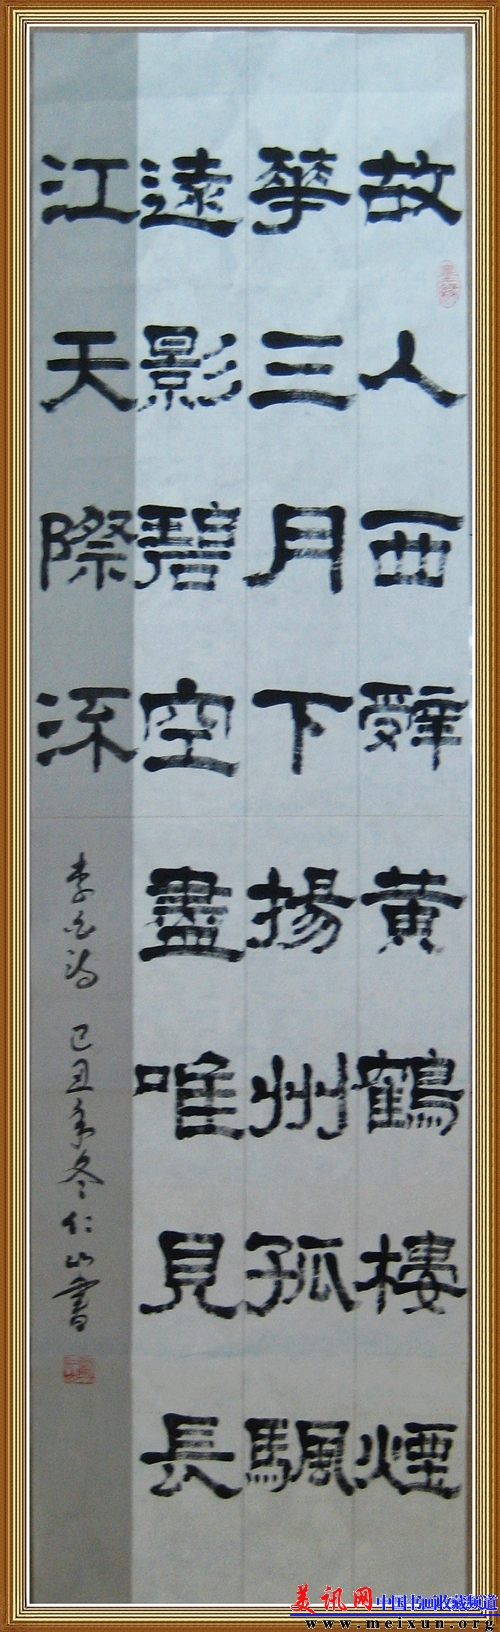 故人西辭黃鶴樓煙
華三月下揚州孤颿
遠影碧空盡唯見長
江天際流
李白詩 己丑年冬仁山書
美讯网中国书画收藏频道
www.meixun.org